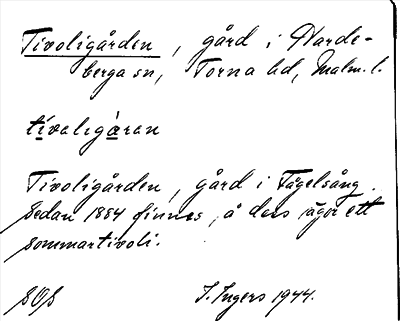 Tivoligården, gård i Harde-
berga sn, Torna hd, Malm. l.
tivaligåran
Tivoligården, gård i Fågelsång.
Sedan 1884 finnes, å dess ägor ett
sommartivoli.
SOS
I. Ingers 1944.